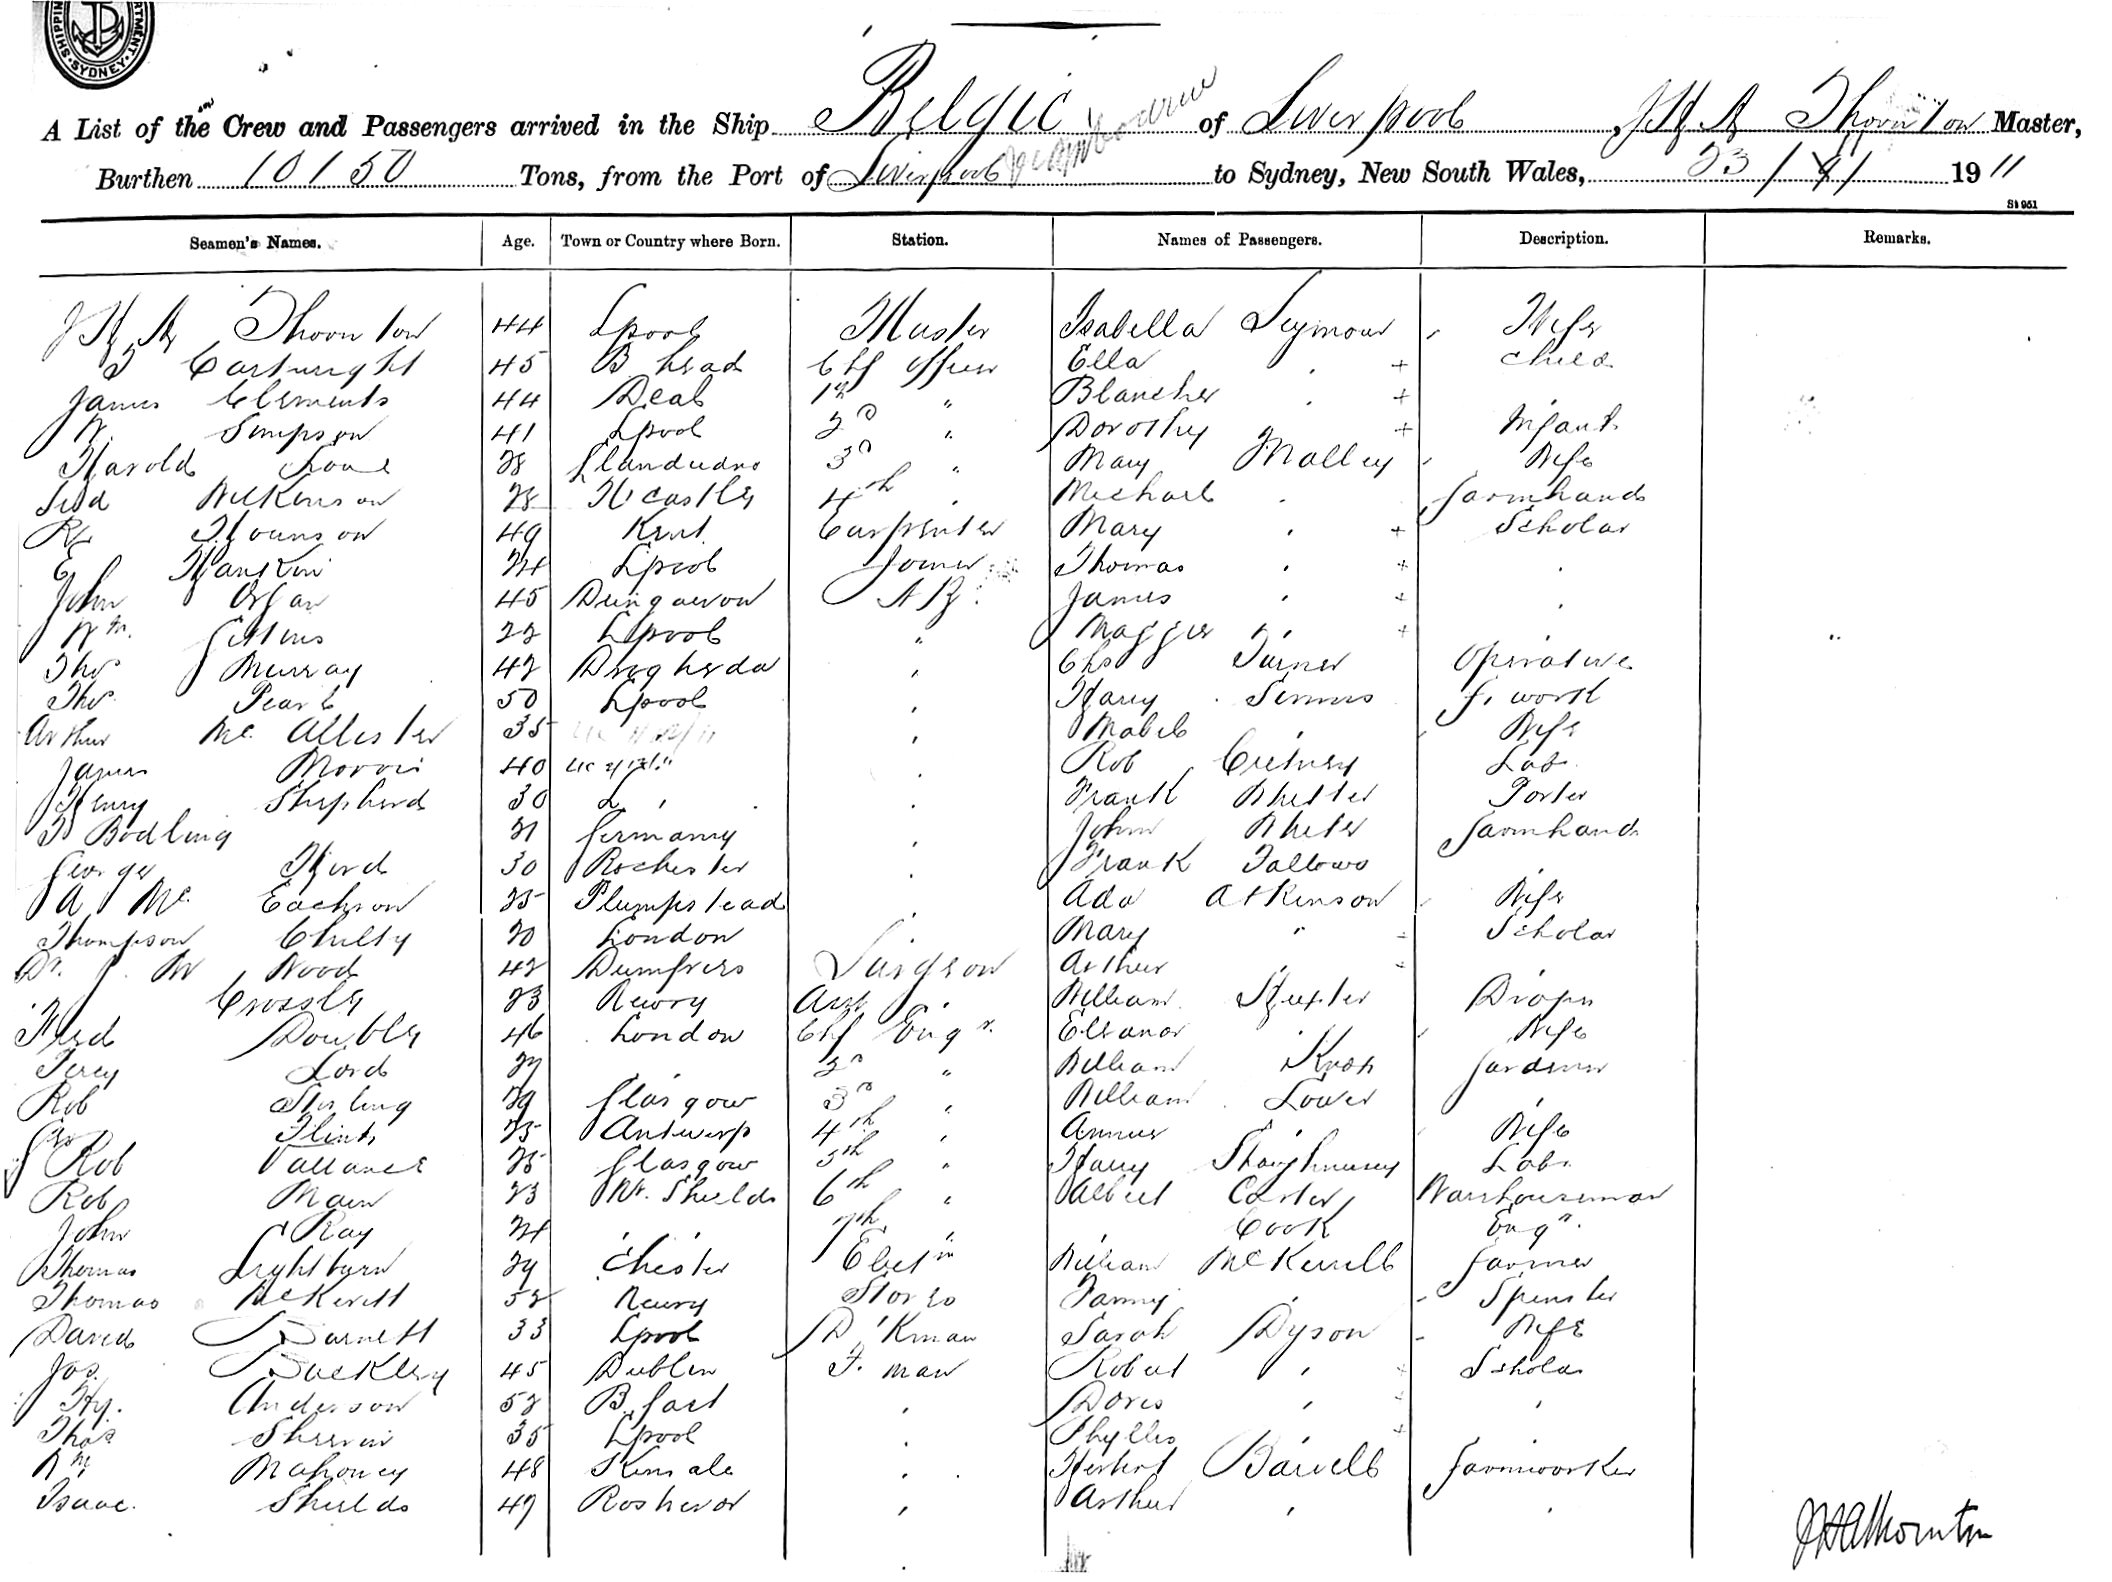 SYDNEY
A List of the Crew and Passengers arrived in the Ship Belgic of Liverpool J H A Thornton Master,
Burthen 10150 Tons, from the Port of Liverpool to Sydney, New South Wales, 23/ 1911
St 951
Seamen's Names. Age. Town or Country where Born. Station. Names of Passengers. Description. Remarks.
J H A Thornton 44 Lpool Master Isabella Seymour Wife
Cartwright 45 B head Chf Officer Ella + Child
James Clements 44 Deal 1st " Blanche +
W. Simpson 41 Lpool 2d " Dorothy + Infant
Harold 28 Llandudno 3d " Mary Malley Wife
Wilkinson 28 N castle 4th Michael farmhand
49 Kent Carpenter Mary + Scholar
E Hankin 24 Lpool Joiner Thomas +
John Organ 45 Dungarvon A B. James +
Wm. Gittins 22 Lpool " Maggie +
Thos Murray 42 Drogheda Chs Turner Operative
Thos. Pearl 50 Lpool Harry f. work
Arthur Mc Allister 35 Mabel Wife
James Morris 40 Rob Lab.
Henry Shepherd 30 L Frank Porter
Bodling 21 Germany John farmhand
George Hurd 30 Rochester Frank Fallows
A Mc Eachson 25 Plumpstead Ada Atkinson Wife
Thompson 20 London Mary " Scholar
Dr. W Wood 42 Dumfries Surgeon Arthur
Crossle 23 Newry Asst William Draper
Fred Double 46 London Chf Engr. Eleanor Wife
Percy Lord 27 2d " William Knox Gardener
Rob Stirling 29 Glasgow 3d " William Lower
Geo Flint 25 Antwerp 4th Annie Wife
Rob Vallance 25 Glasgow 5th " Harry Shaughnessy Lab.
Rob Main 23 Nr. Shields 6th " Albert Carter Warehouseman
John Ray 24 7th " Cook Engr.
Thomas Lightburn 29 Chester Electn William McKerrell Farmer
Thomas McKevitt 52 Newry Stores Fanny Spinster
David Barnett 33 Lpool D'Kman Sarah Dyson Wife
Jos. Buckley 45 Dublin F. man Robert Scholar
Hy. Anderson 52 B. fast Doris
Thos 35 Lpool Phyllis +
Wm. Mahoney 48 Kinsale Herbert farmworker
Isaac Shields 47 Arthur
J H A Thornton